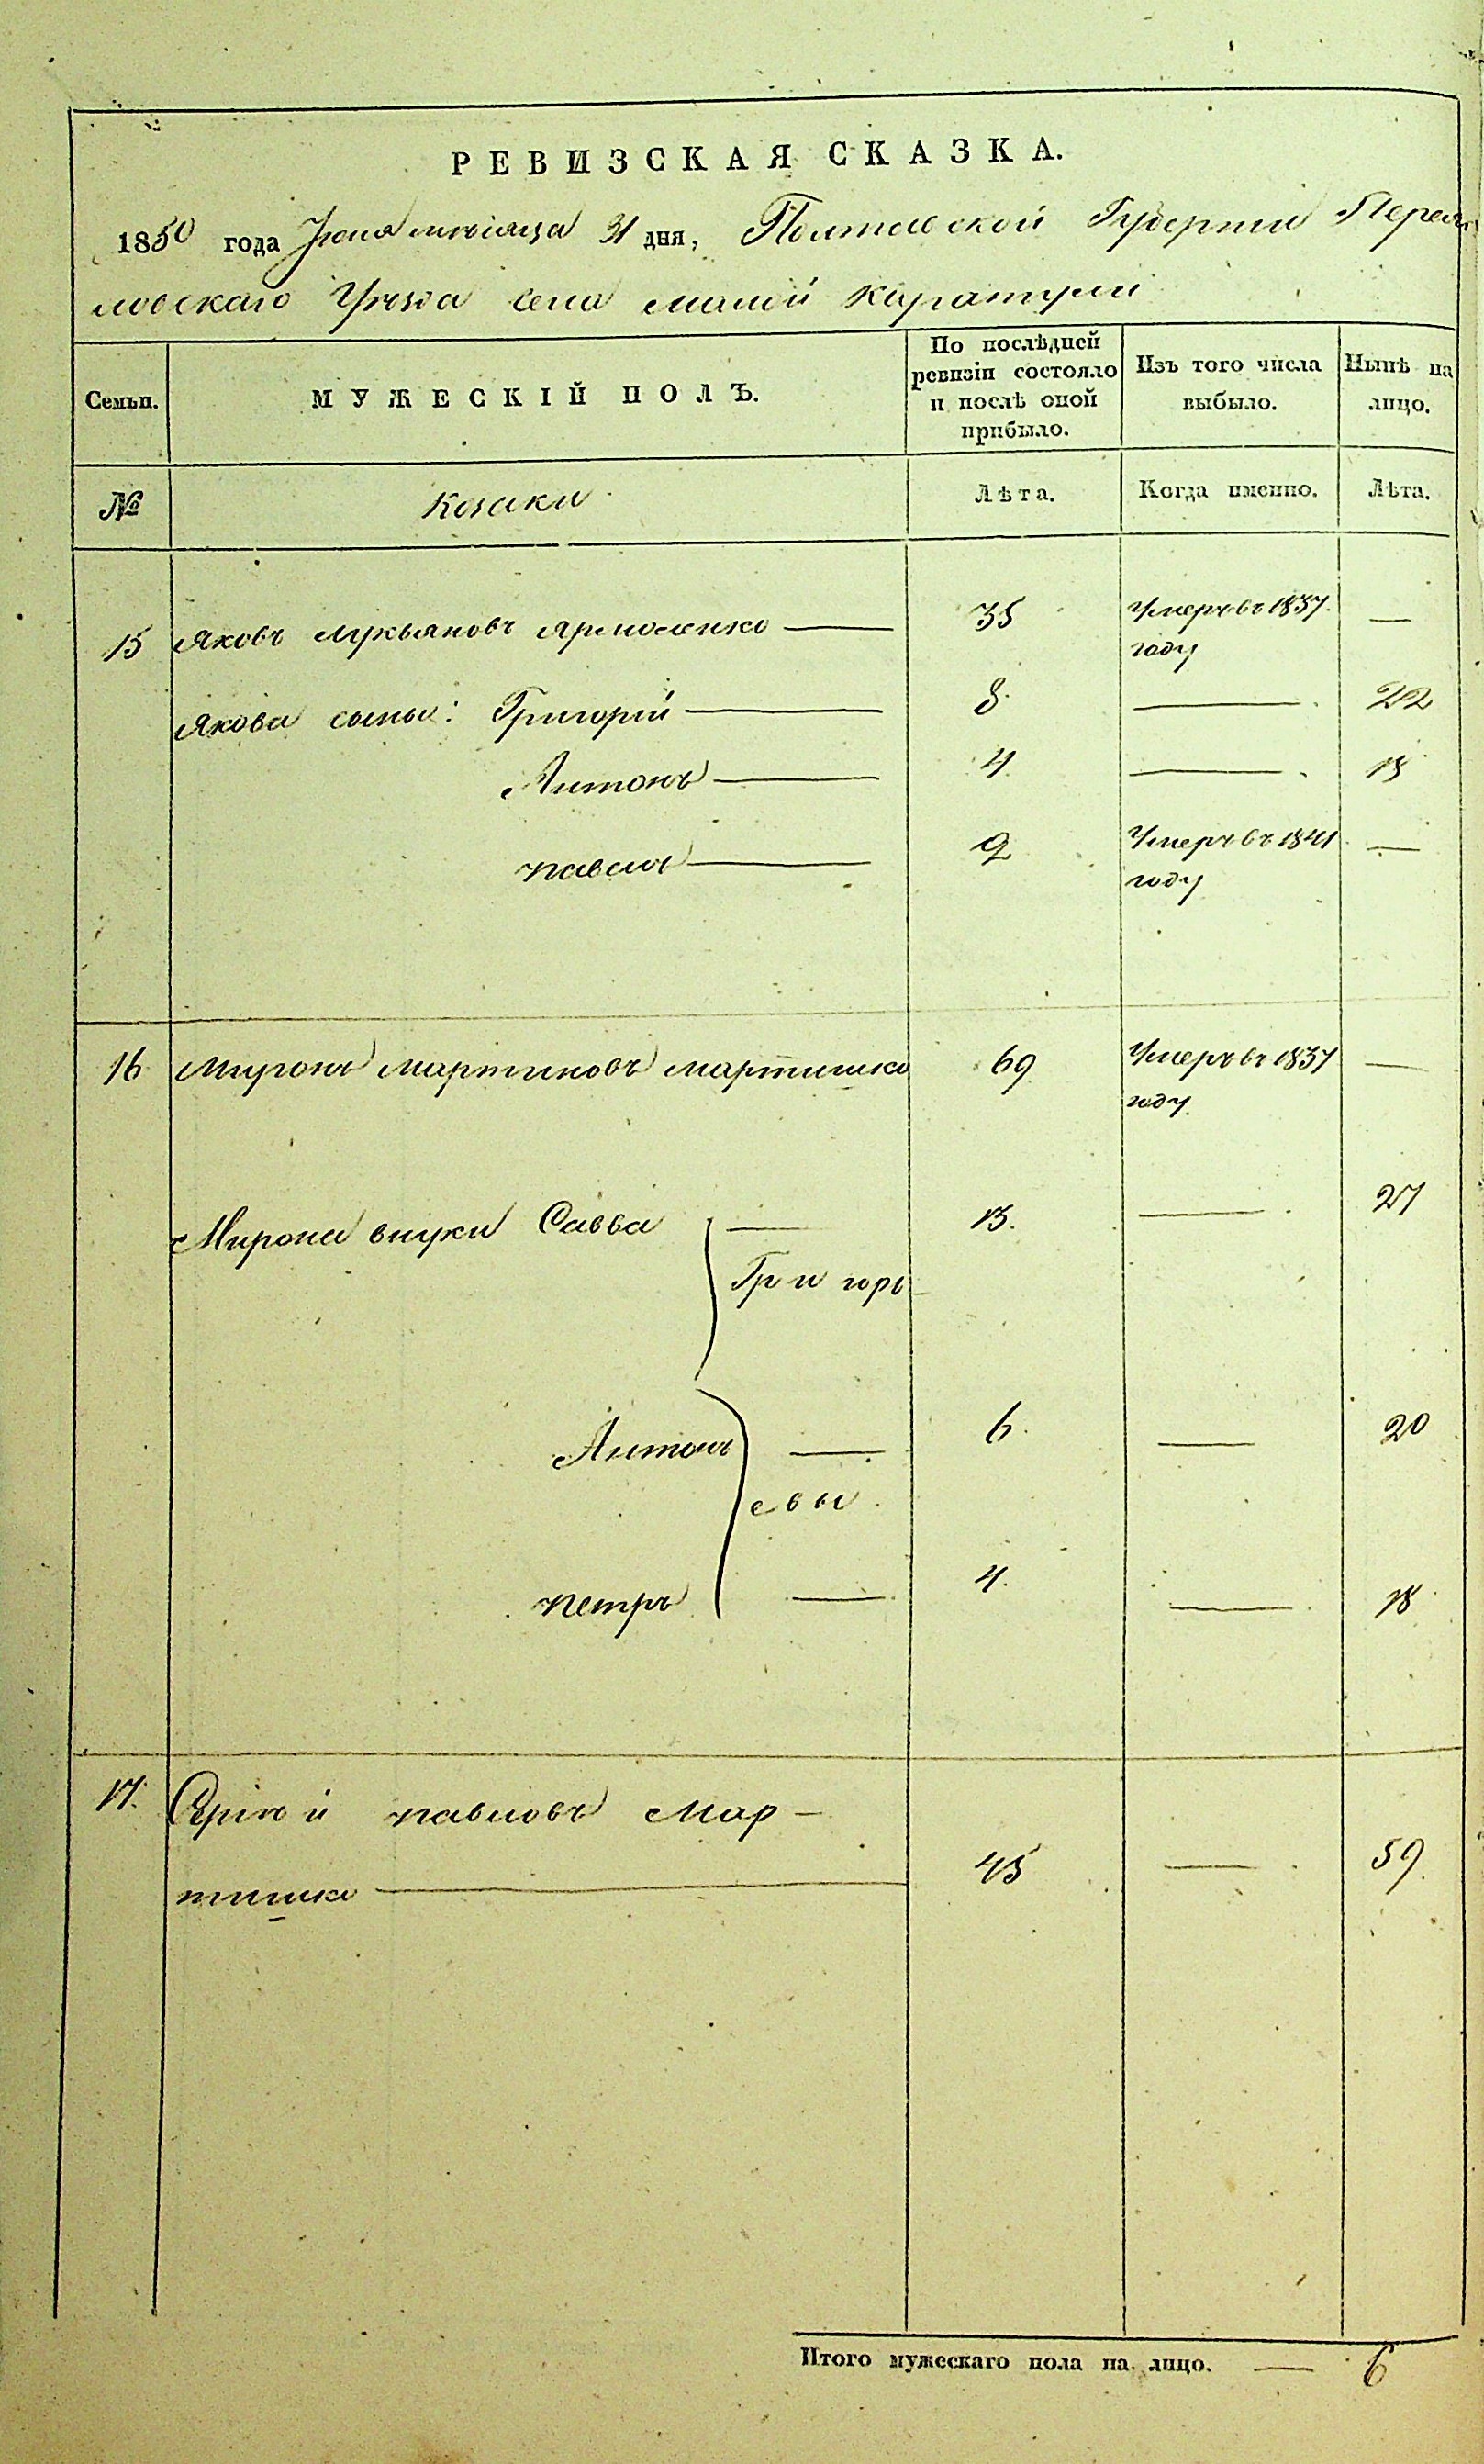 РЕВИЗСКАЯ СКАЗКА.
1850 года Июня мѣсяца 31 дня, Полтавской Губерніи Переяс
ловскаго Уѣзда села малой Каратули
Семьи.
МУЖЕСКІЙ ПОЛЪ.
По послѣдней
ревизіи состояло
и послѣ оной
прибыло.
Изъ того числа
выбыло.
Нынѣ на
лицо.
№
Козаки
Лѣта.
Когда именно.
Лѣта.
15 Яковъ Лукьяновъ Ярмоленко — 35 Умеръ въ 1837 —
году
Якова сыны: Григорій — 8 — 22
Антонъ — 4 — 18
павелъ — 2 Умеръ въ 1841 —
году
16 Миронъ Мартиновъ Мартишко 69 Умеръ въ 1837 —
году
Мирона внуки Савва — 13. — 27
Григорь
Антонъ — 6. — 20
евы
петръ — 4. — 18
17. павловъ Мар-
тишко — 45 — 59
Итого мужескаго пола на лицо. — 6